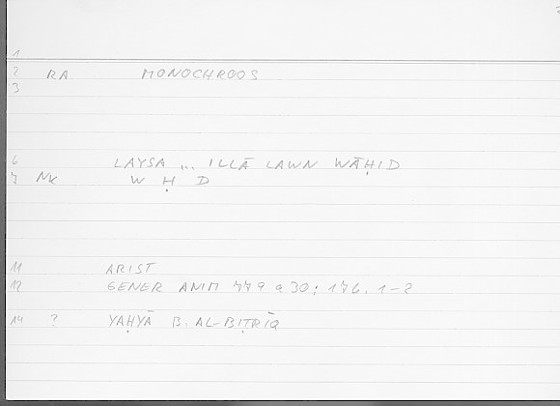 1
2 RA MONOCHROOS
3
6 LAYSA ... ILLĀ LAWN WĀḤID
7 NK W Ḥ D
11 ARIST
12 GENER ANIM 779 a 30; 176, 1-2
14 ? YAḤYĀ B. AL-BIṬRĪQ